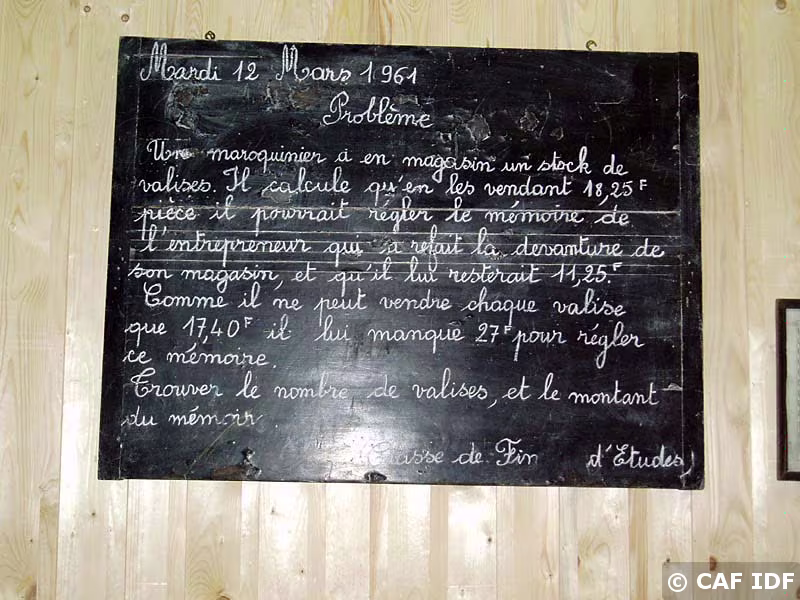 Mardi 12 Mars 1961
Problème
Un maroquinier a en magasin un stock de
valises. Il calcule qu'en les vendant 18,25F
pièce il pourrait régler le mémoire de
l'entrepreneur qui a refait la devanture de
son magasin, et qu'il lui resterait 11,25.F
Comme il ne peut vendre chaque valise
que 17,40F il lui manque 27F pour régler
ce mémoire.
Trouver le nombre de valises, et le montant
du mémoir
Classe de Fin d'Etudes
© CAF IDF